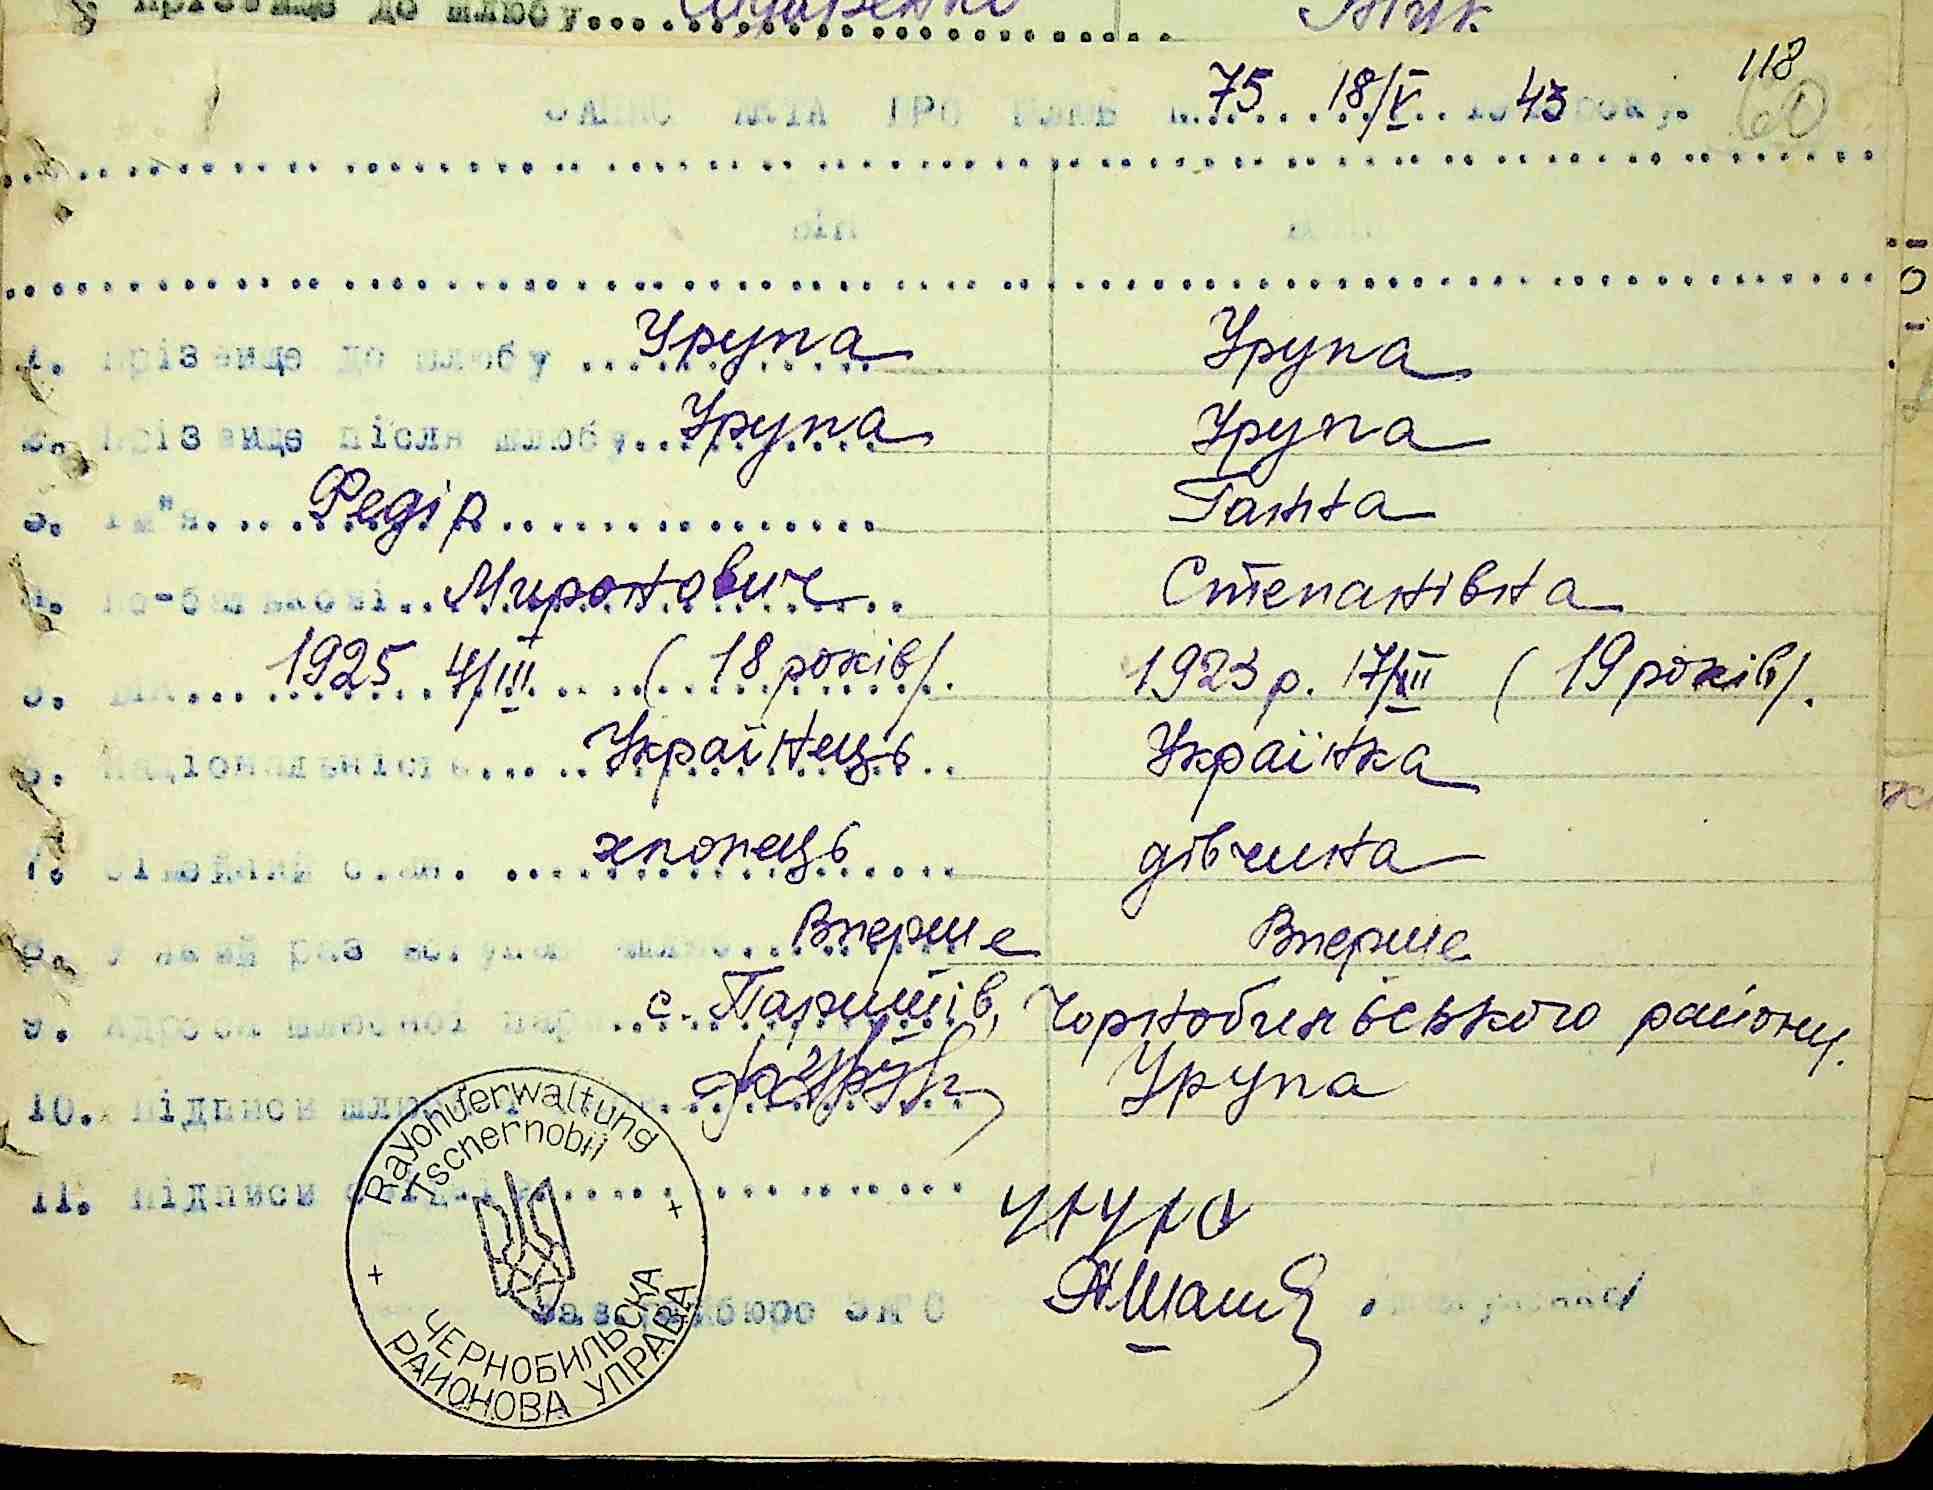 прізвище до шлюбу.....
ЗАПИС АКТА ПРО ШЛЮБ №.75.. 18/V.. 1943 року.
118
60
він
1. Прізвище до шлюбу .... Урупа Урупа
2. Прізвище після шлюбу.... Урупа Урупа
3. Ім"я.... Федір .... Ганна
4. по-батькові.. Миронович .... Степанівна
5. .... 1925 4/III ( 18 років/. 1923 р. 17/XII ( 19 років/.
6. Національність.... Українець Українка
7. .... хлопець дівчина
8. У який раз вступає .... Вперше Вперше
9. Адреса шлюбної пари.... с. Паришів, Чорнобильського району.
10. Підписи .... Урупа
11. Підписи ....
Rayonuerwaltung
Tschernobil
ЧЕРНОБИЛЬСКА
РАЙОНОВА УПРАВА
Зав. райбюро ЗАГС